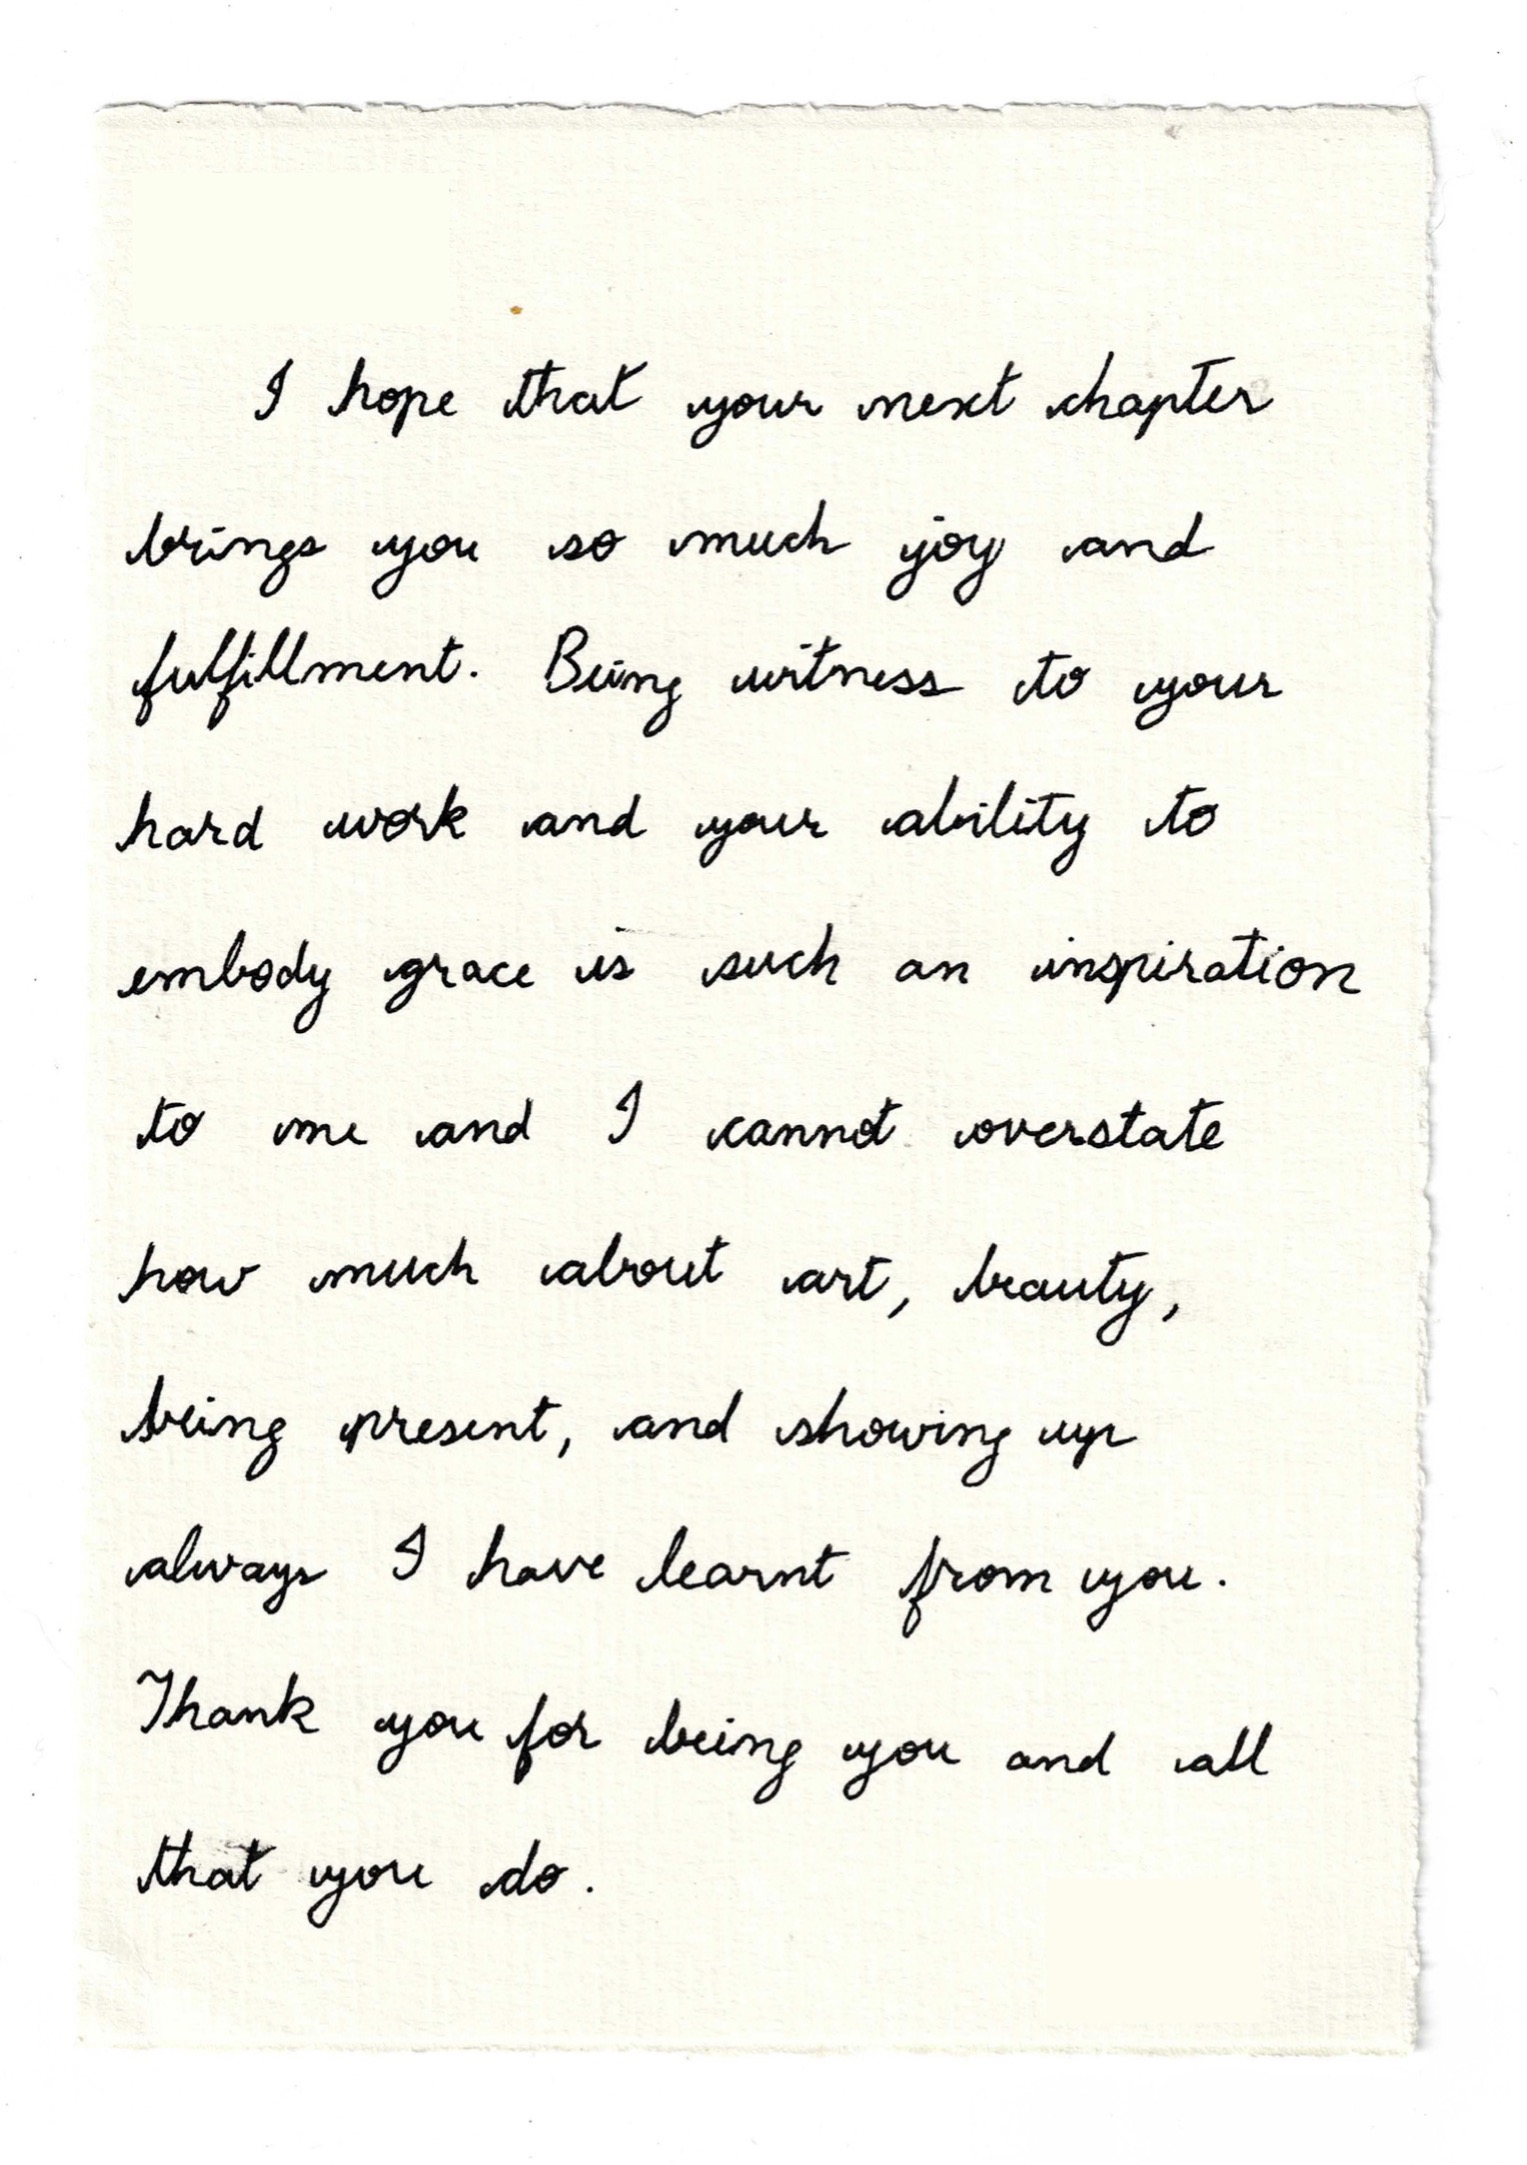 I hope that your next chapter
brings you so much joy and
fulfillment. Being witness to your
hard work and your ability to
embody grace is such an inspiration
to me and I cannot overstate
how much about art, beauty,
being present, and showing up
always I have learnt from you.
Thank you for being you and all
that you do.